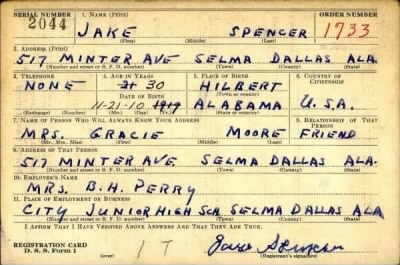 SERIAL NUMBER 1. NAME (Print) ORDER NUMBER
2044 JAKE SPENCER 1733
(First) (Middle) (Last)
2. ADDRESS (Print)
517 MINTER AVE SELMA DALLAS ALA.
(Number and street or R. F. D. number) (Town) (County) (State)
3. TELEPHONE 4. AGE IN YEARS 5. PLACE OF BIRTH 6. COUNTRY OF CITIZENSHIP
NONE 30 HILBERT
DATE OF BIRTH (Town or county)
11-21-10 ALABAMA U.S.A.
(Exchange) (Number) (Mo.) (Day) (Yr.) (State or country)
7. NAME OF PERSON WHO WILL ALWAYS KNOW YOUR ADDRESS 8. RELATIONSHIP OF THAT PERSON
MRS. GRACIE MOORE FRIEND
(Mr., Mrs., Miss) (First) (Middle) (Last)
9. ADDRESS OF THAT PERSON
517 MINTER AVE SELMA DALLAS ALA.
(Number and street or R. F. D. number) (Town) (County) (State)
10. EMPLOYER'S NAME
MRS. B.H. PERRY
11. PLACE OF EMPLOYMENT OR BUSINESS
CITY JUNIOR HIGH SCH SELMA DALLAS ALA
(Number and street or R. F. D. number) (Town) (County) (State)
I AFFIRM THAT I HAVE VERIFIED ABOVE ANSWERS AND THAT THEY ARE TRUE.
REGISTRATION CARD
D. S. S. Form 1 1 T Jake Spencer
(Registrant's signature)